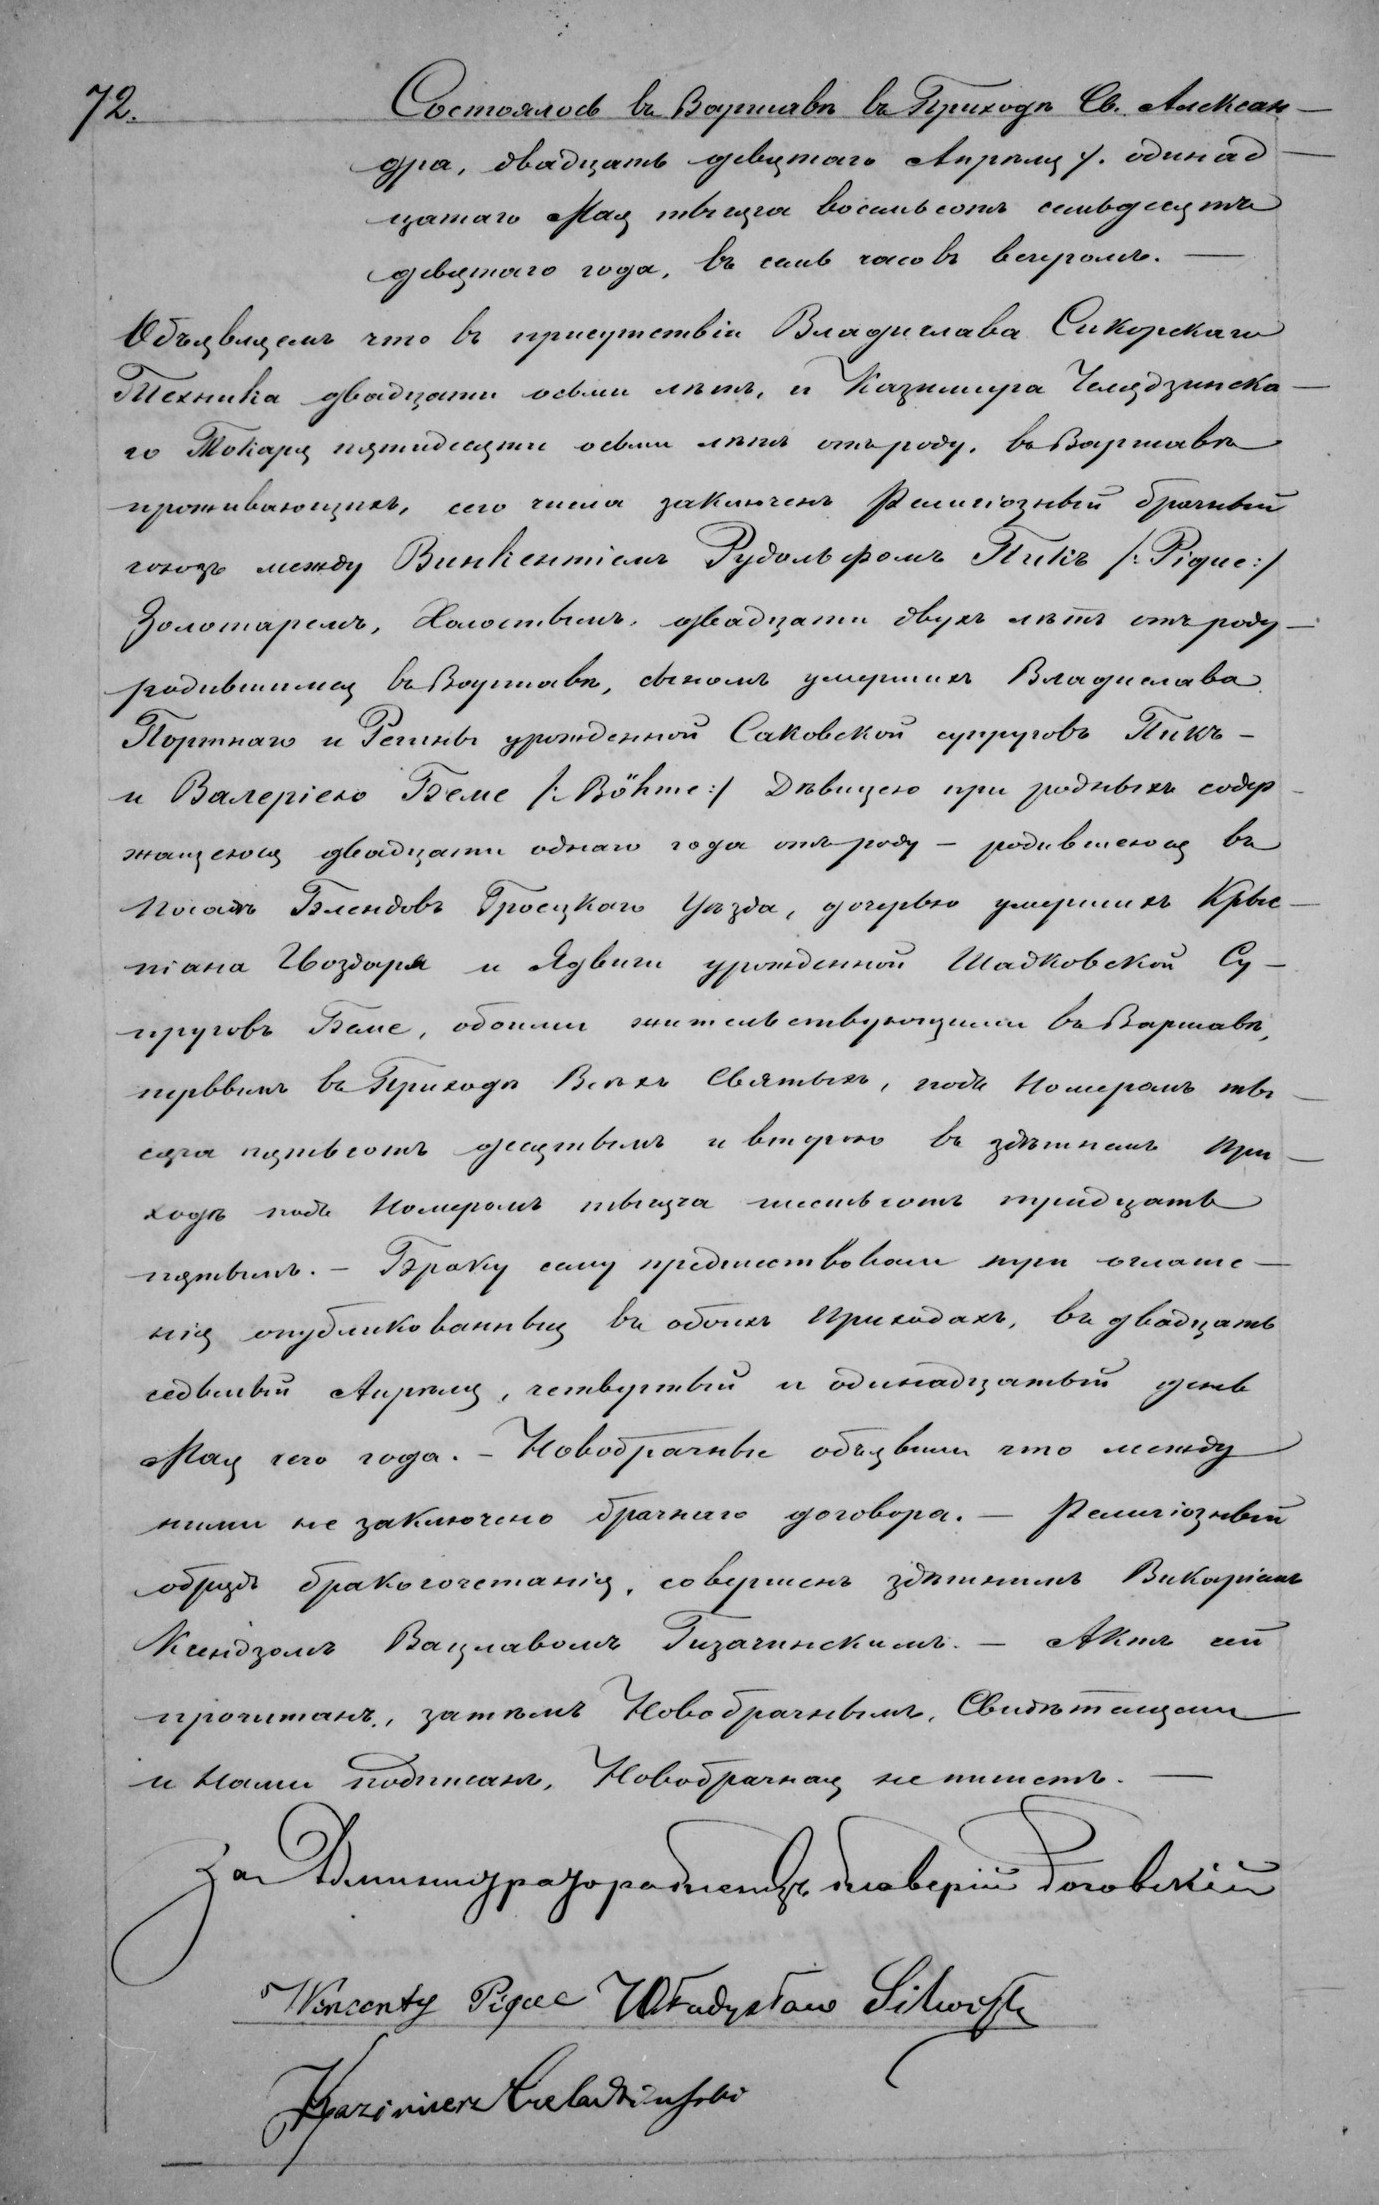 72. Состоялось въ Варшавѣ въ Приходѣ Св. Алексан-
дра, двадцать девятаго Апрѣля /. одинад-
цатаго Мая тысяча восемьсотъ семьдесятъ
девятаго года, въ семь часовъ вечеромъ. —
Объявляемъ что въ присутствіи Владислава Сикорскаго
Техника двадцати осьми лѣтъ, и Казимира Челядзинска-
го Токаря пятидесяти осьми лѣтъ отъ роду, въ Варшавѣ
проживающихъ, сего числа заключенъ Религіозный брачный
союзъ между Винкентіемъ Рудольфомъ Пикъ /: Pique :/
Золотаремъ, Холостымъ, двадцати двухъ лѣтъ отъ роду —
родившимся въ Варшавѣ, сыномъ умершихъ Владислава
Портнаго и Регины урожденной Саковской супруговъ Пикъ —
и Валеріею Беме /: Böhme :/ Дѣвицею при родныхъ содер-
жащеюся двадцати однаго года отъ роду — родившеюся въ
Посадѣ Блендовъ Гроецкаго Уѣзда, дочерью умершихъ Крыс-
піана Гвоздаря и Ядвиги урожденной Шадковской Су-
пруговъ Беме, обоими жительствующими въ Варшавѣ,
первымъ въ Приходѣ Всѣхъ Святыхъ, подъ Номеромъ ты-
сяча пятьсотъ десятымъ и второю въ здѣшнемъ При-
ходѣ подъ Номеромъ тысяча шестьсотъ тридцать
пятымъ. — Браку сему предшествовали три оглаше-
нія опубликованныя въ обоихъ Приходахъ, въ двадцать
седьмый Апрѣля, четвертый и одинадцатый день
Мая сего года. — Новобрачные объявили что между
ними не заключено брачнаго договора. — Религіозный
обрядъ бракосочетанія, совершенъ здѣшнимъ Викаріемъ
Ксендзомъ Вацлавомъ Гизачинскимъ. — Актъ сей
прочитанъ, затѣмъ Новобрачнымъ, Свидѣтелями
и Нами подписанъ, Новобрачная не пишетъ. —
За Администратора Роговскій
Wincenty Pique Władysław Sikorski
Kazimierz Czeladziński